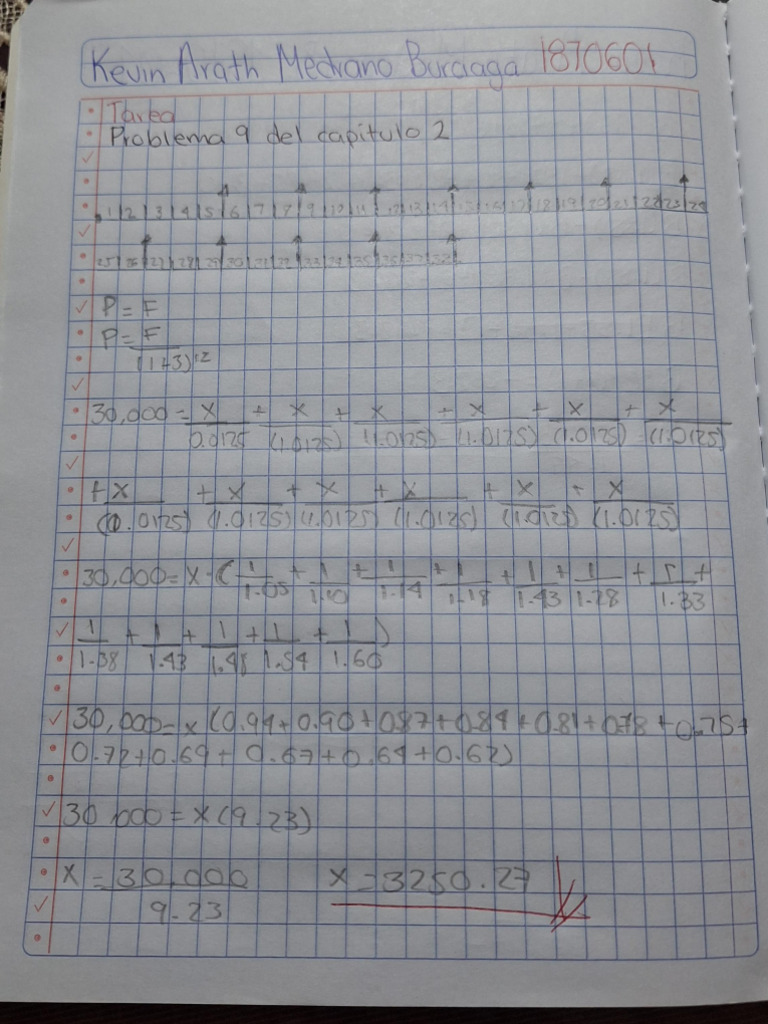 Kevin Arath Medrano Burciaga 1870601
Tarea
Problema 9 del capitulo 2
1 2 3 4 5 6 7 8 9 10 11 12 13 14 15 16 17 18 19 20 21 22 23 24
25 26 27 28 29 30 31 32 33 34 35
P = F
P = F / (1+3)^12
30,000 = x/0.0125 + x/(1.0125) + x/(1.0125) + x/(1.0125) + x/(1.0125) + x/(1.0125)
+ x/(1.0125) + x/(1.0125) + x/(1.0125) + x/(1.0125) + x/(1.0125) + x/(1.0125)
30,000 = x · (1/1.05 + 1/1.10 + 1/1.14 + 1/1.18 + 1/1.43 + 1/1.28 + 1/1.33 +
1/1.38 + 1/1.43 + 1/1.48 + 1/1.54 + 1/1.60)
30,000 = x (0.94+0.90+0.87+0.84+0.81+0.78+0.75+
0.72+0.69+0.67+0.64+0.62)
30,000 = x (9.23)
x = 30,000 / 9.23 x = 3250.27